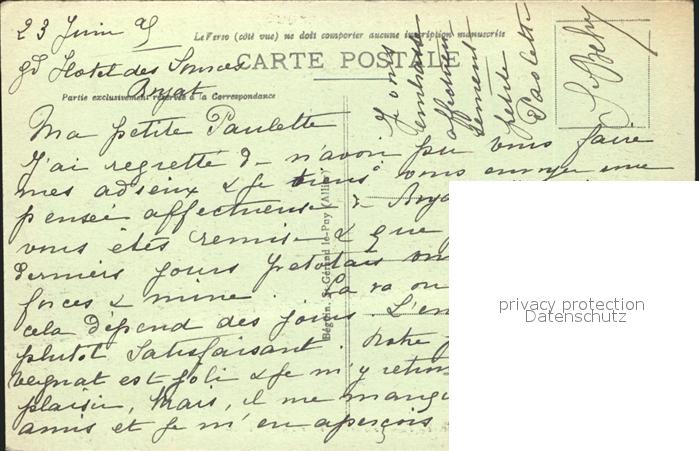 23 Juin 25
gd Hotel des Sources
Royat
Le Verso (côté vue) ne doit comporter aucune inscription manuscrite
CARTE POSTALE
Partie exclusivement réservée à la Correspondance
Ma petite Paulette
J'ai regretté de n'avoir pu vous faire
mes adieux & je tiens à vous envoyer une
pensée affectueuse de Roya
vous êtes remise & que
derniers jours
forces & mine. Ça va ou
cela dépend des jours. L'en
plutôt satisfaisant. Notre
est joli & je m'y retrou
plaisir, mais, il me manqu
amis et je m'en aperçois
Je vous
embrasse
affectueu
sement
petite
Paulette
Bégoin, St-Gérand-le-Puy (Allier)
privacy protection
Datenschutz